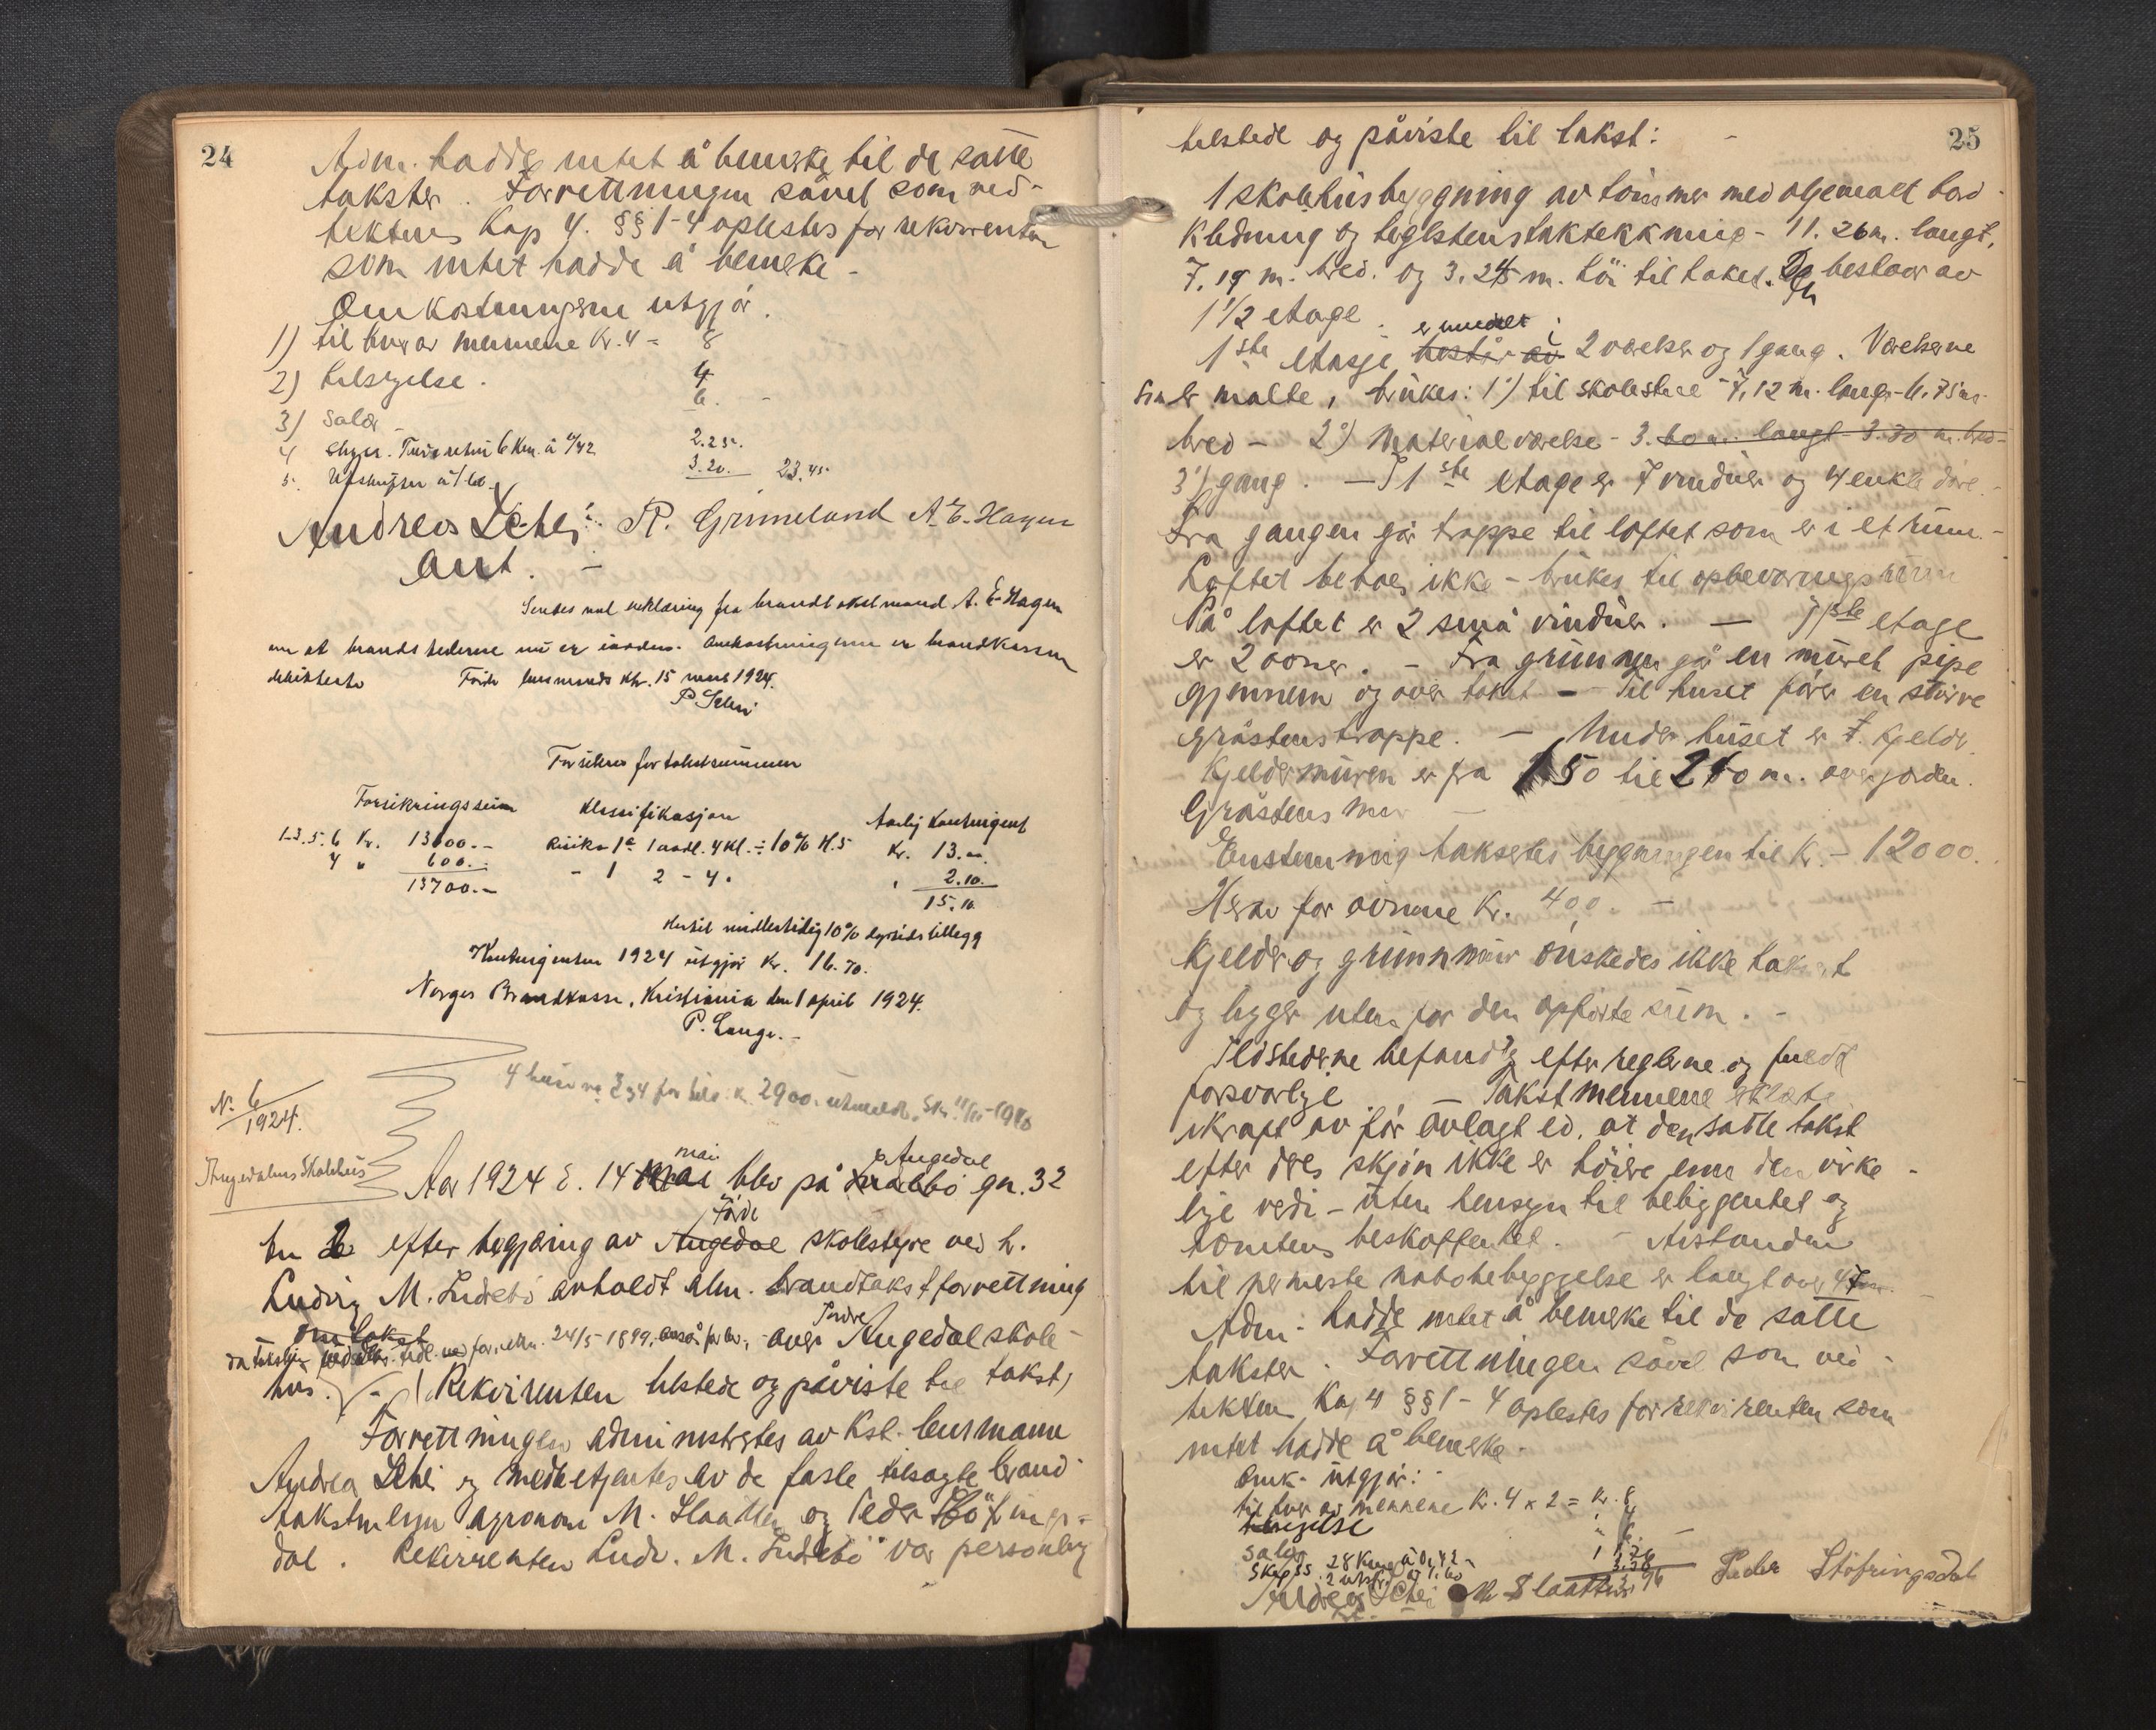 24
Adm. hadde intet å bemerke til de satte
takster. Forrettningen såvel som ved-
tektenes Kap 4. §§ 1-4 oplestes for rekvirenten
som intet hadde å bemerke -
Omkostningerne utgjór.
1) til hver av mennene Kr. 4 = 8
2) tilsigelse. 4
3) Salær - 6. -
4 Skyss. Tur o retur 6 Km. à 0/42 2.25.
5. Utskrifter à 1/60 3.20. 23.45
Andreas Schei R. Grimeland A. E. Hagen
Ant. -
Sendes med erklæring fra brandtakstmand A. E. Hagen
om at brandstederne nu er iorden. Omkostningerne er brandkassen
debiterte Förde lensmands ktr. 15 mars 1924.
P. Schei
Forsikres for takstsummen
Forsikringssum Klassifikasjon Aarlig Kontingent
1-3.5.6 Kr. 13100.- Risiko 1a 1 avdl. 4 Kl. ÷ 10% H.5 Kr. 13.00.
4 " 600.- - 1 2 - 4 " " 2.10.
13700.- 15.10
hertil midlertidig 10% dyrtidstillegg
Kontingenten 1924 utgjör Kr. 16.70.
Norges Brandkasse, Kristiania den 1 april 1924.
P. Lange.-
4 huse nr 3 og 4 for tils. kr 2900.- utmeldt.
N. 6
1924.
Angedalens Skolehus
mai Angedal
Aar 1924 d. 14 mai blev på Indrebö gn. 32
Förde
bn 2 efter begjæring av Angedal skolestyre ved h.
Ludvig M. Indrebö avholdt alm. brandtakstforrettning
om takst Indre
24/5-1899, over Angedal skole-
hus. - Rekvirenten tilstede og påviste til takst,
Forrettningen administrertes av Kst. lensmann
Andrea Schei og medbetjentes av de faste tilsagte brand-
takstmenn agronom M. Slaatten og Peder Stöfrings-
dal. Rekvirenten Ludv. M. Indrebö var personlig
25
tilstede og påviste til takst: -
1 skolehusbyggning av tömmer med oljemalt bord-
kledning og teglstenstaktekkning - 11.26 m. langt,
7.19 m. bred. og 3.25 m. höi til taket. De bestaar av
1 1/2 etage.
er inredet i
1ste etasje består av 2 værelser og 1 gang. Værelserne
som er malte, brukes: 1) til skolestue - 7,12 m. lang - 6.75 m.
bred - 2) Materialværelse - 3.60 m. langt - 3.30 m. bred -
3) gang. - I 1ste etage er 7 vinduer og 4 enkle döre. -
Fra gangen går trappe til loftet som er i et rum. -
Loftet beboes ikke - brukes til opbevaringsrum
På loftet er 2 små vinduer. - I 1ste etage
er 2 ovner. - Fra grunnen går en muret pipe
gjennem og over taket - - Til huset förer en större
gråstenstrappe. - Under huset er f. kjelder.
Kjeldermuren er fra 1.50 til 2.10 m. over jorden.
Gråstens mur -
Enstemmig takseres byggningen til Kr. - 12000.
Herav for ovnene Kr. 400. -
Kjelder og grunnmur önskedes ikke taksert
og ligger uten for den opförte sum. -
Ildstederne befandtes efter reglerne og fuldt
forsvarlige - Takstmennene erklærte
i kraft av för avlagt ed, at den satte takst
efter deres skjön ikke er höiere enn den virke-
lige verdi - uten hensyn til beliggenhet og
tomtens beskaffenhet. - Avstanden
til nærmeste nabobebyggelse er langt over
Adm. hadde intet å bemerke til de satte
takster. Forrettningen såvel som ved-
tekten Kap 4 §§ 1-4 oplestes for rekvirenten som
intet hadde å bemerke -
Omk. utgjör:
til hver av mennene Kr. 4 x 2 = Kr. 8
tilsigelse " 4
salær " 6. -
Skyss. 28 Km à 0,42
2 utskr. à 1.60
Andreas Schei M Slaatten Peder Stöfringsdal